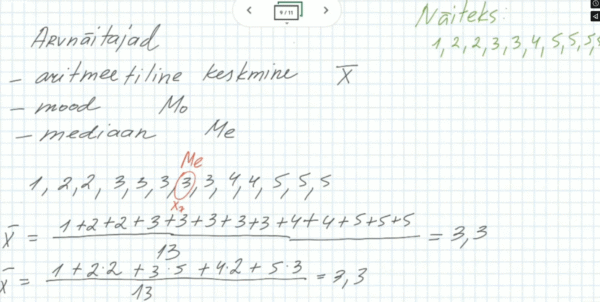 9 / 11
Arvnäitajad
– aritmeetiline keskmine x̅
– mood Mo
– mediaan Me
Näiteks:
1, 2, 2, 3, 3, 4, 5, 5, 5,
Me
1, 2, 2, 3, 3, 3, 3, 3, 4, 4, 5, 5, 5
x₇
x̅ = 1+2+2+3+3+3+3+3+4+4+5+5+5 / 13 = 3,3
x̅ = 1+2·2+3·5+4·2+5·3 / 13 = 3,3